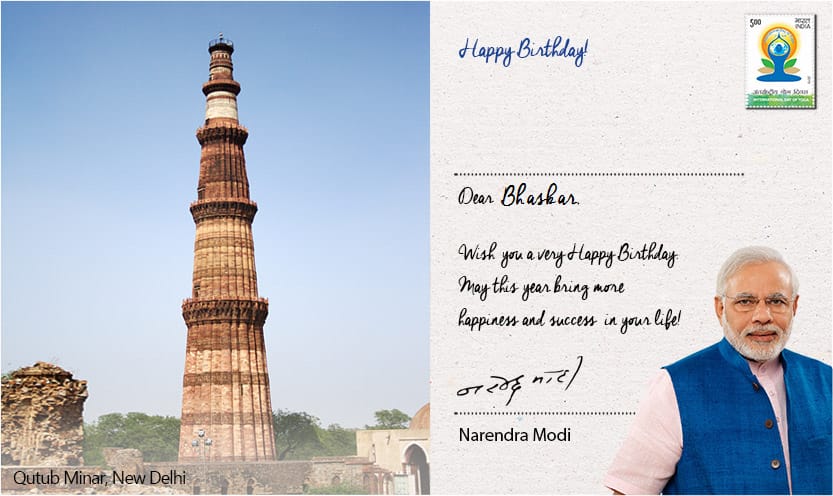 Happy Birthday!
5.00
भारत
INDIA
अंतर्राष्ट्रीय योग दिवस
INTERNATIONAL DAY OF YOGA
Dear Bhaskar,
Wish you a very Happy Birthday.
May this year bring more
happiness and success in your life!
नरेन्द्र मोदी
Narendra Modi
Qutub Minar, New Delhi